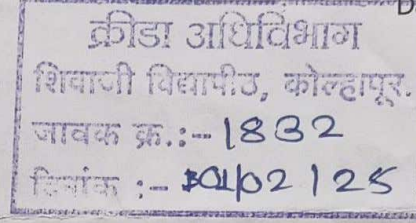 क्रीडा अधिविभाग
शिवाजी विद्यापीठ, कोल्हापूर.
जावक क्र.:- 1832
दिनांक :- /02/25